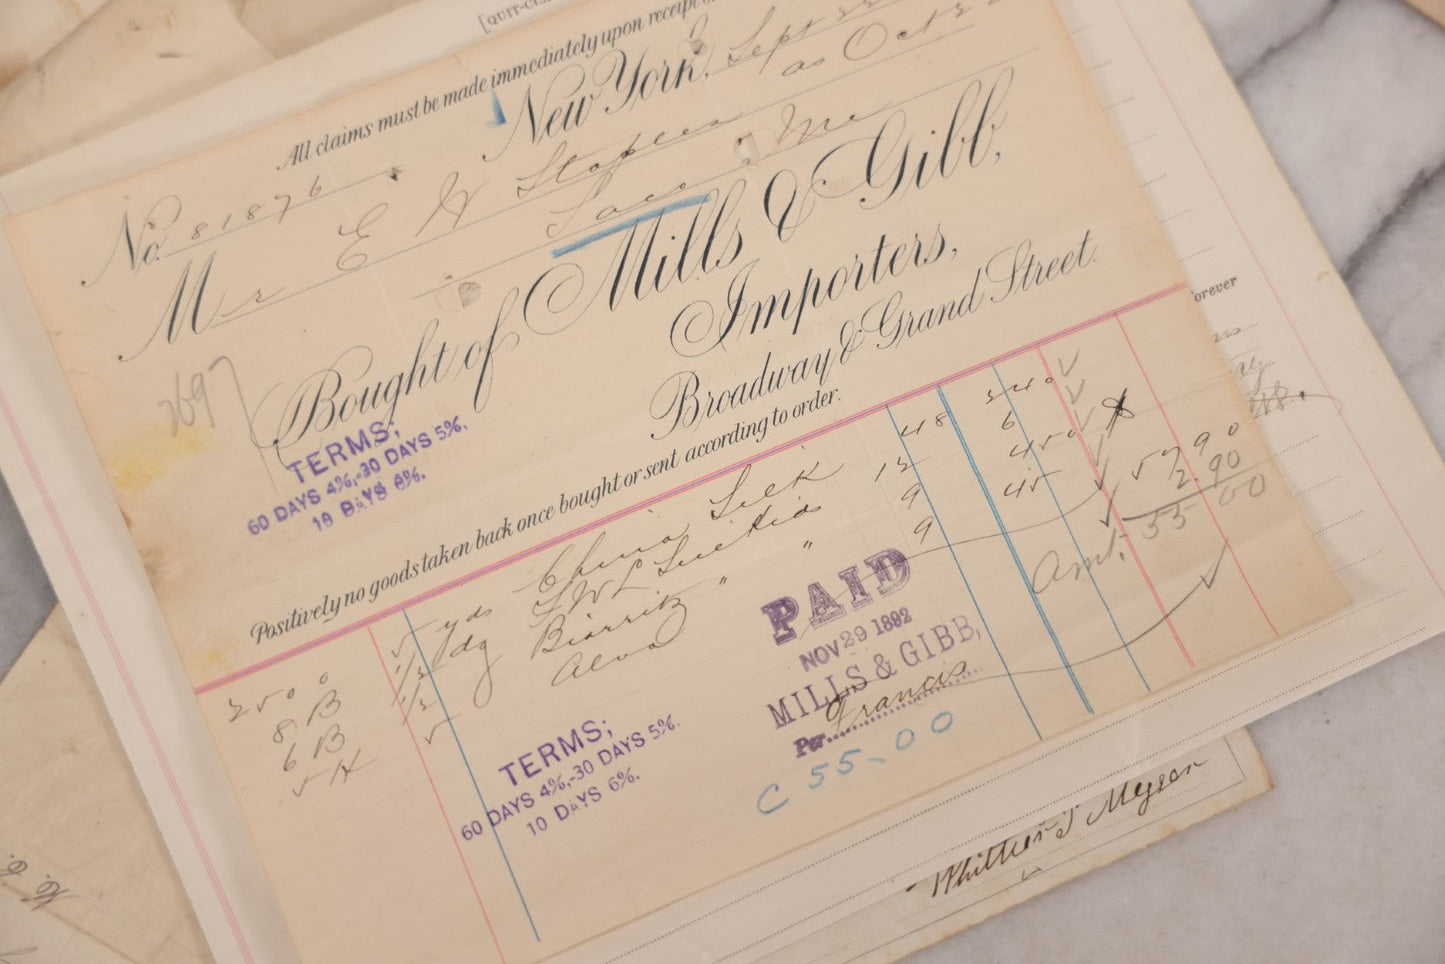 [QUIT-CL
All claims must be made immediately upon receipt
New York, Sept 22
as Oct 22
No. 81876
Mr E W Staples
Saco Me
Bought of Mills & Gibb,
Importers,
Broadway & Grand Street.
2697
TERMS;
60 DAYS 4%,-30 DAYS 5%.
10 DAYS 6%.
Positively no goods taken back once bought or sent according to order.
2500 5 yds China Silk 48 240
8 B 1/2 dg 12 6
6 B 1/2 Biarritz " " 9 450
5 H 5 9 45
5790
2.90
Amt, 55 00
PAID
NOV 29 1892
MILLS & GIBB,
Per Francis
TERMS;
60 DAYS 4%,-30 DAYS 5%.
10 DAYS 6%.
C 55.00
orever
Whittier